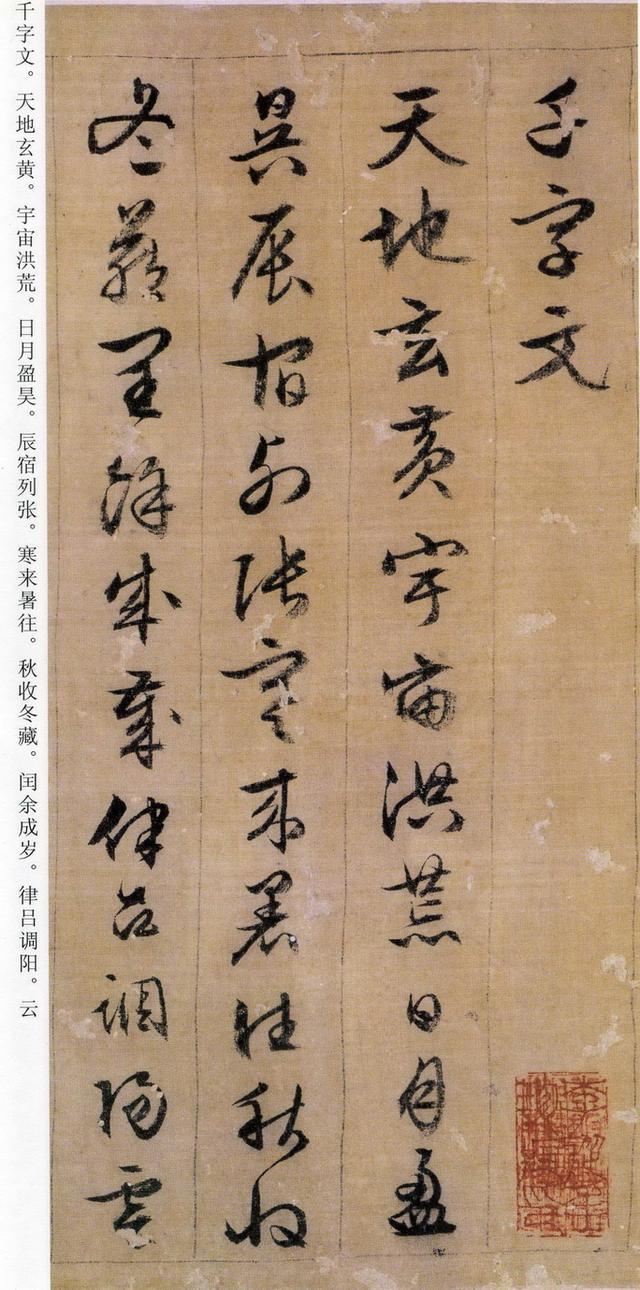 千字文
天地玄黄宇宙洪荒日月盈
昃辰宿列張寒来暑往秋收
冬藏閏餘成歲律吕調陽雲
千字文。天地玄黄。宇宙洪荒。日月盈昊。辰宿列张。寒来暑往。秋收冬藏。闰余成岁。律吕调阳。云